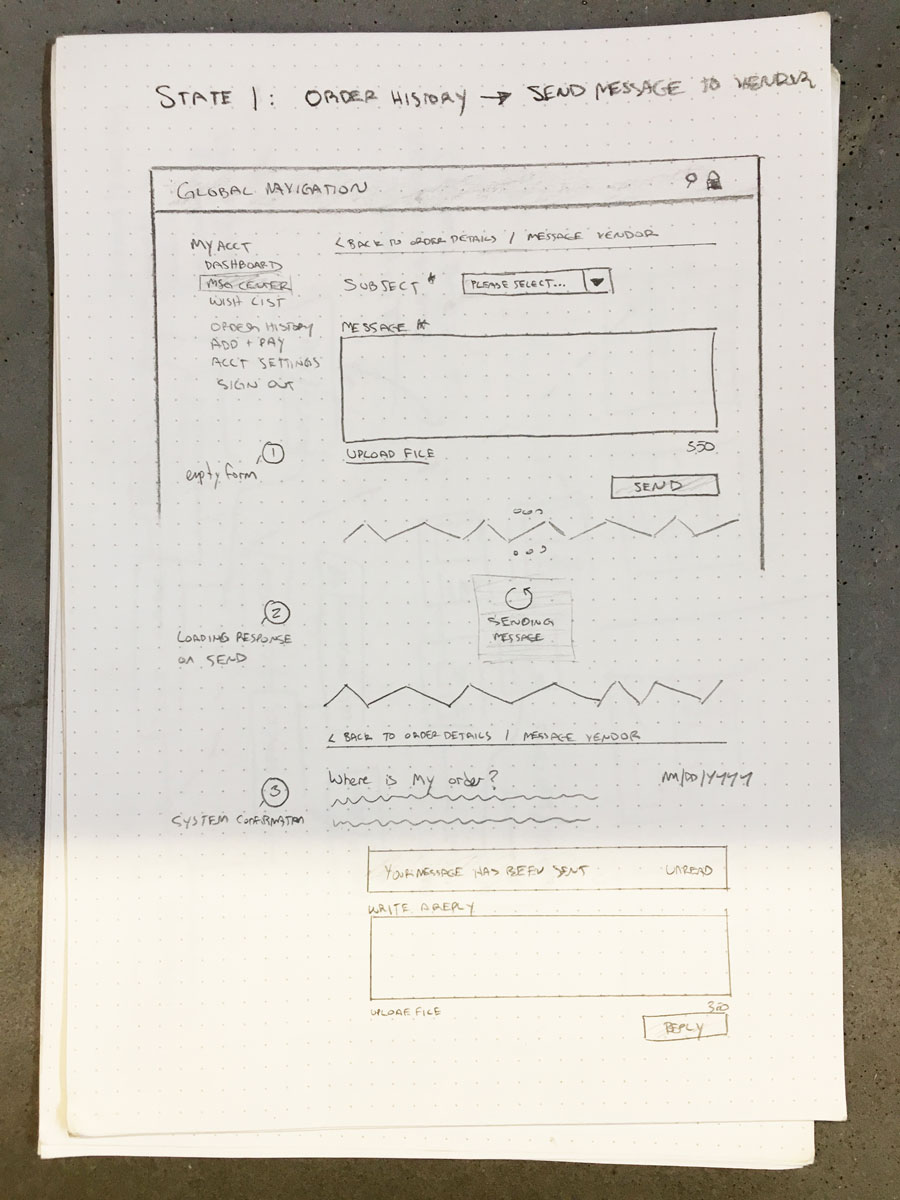 STATE 1: ORDER HISTORY → SEND MESSAGE TO VENDOR
GLOBAL NAVIGATION
MY ACCT
DASHBOARD
MSG CENTER
WISH LIST
ORDER HISTORY
ADD + PAY
ACCT SETTINGS
SIGN OUT
< BACK TO ORDER DETAILS / MESSAGE VENDOR
SUBJECT * PLEASE SELECT...
MESSAGE *
UPLOAD FILE 550
SEND
1
empty form
2
LOADING RESPONSE
ON SEND
SENDING
MESSAGE
< BACK TO ORDER DETAILS / MESSAGE VENDOR
3
SYSTEM CONFIRMATION
Where is my order? MM/DD/YYYY
YOUR MESSAGE HAS BEEN SENT UNREAD
WRITE A REPLY
UPLOAD FILE
REPLY